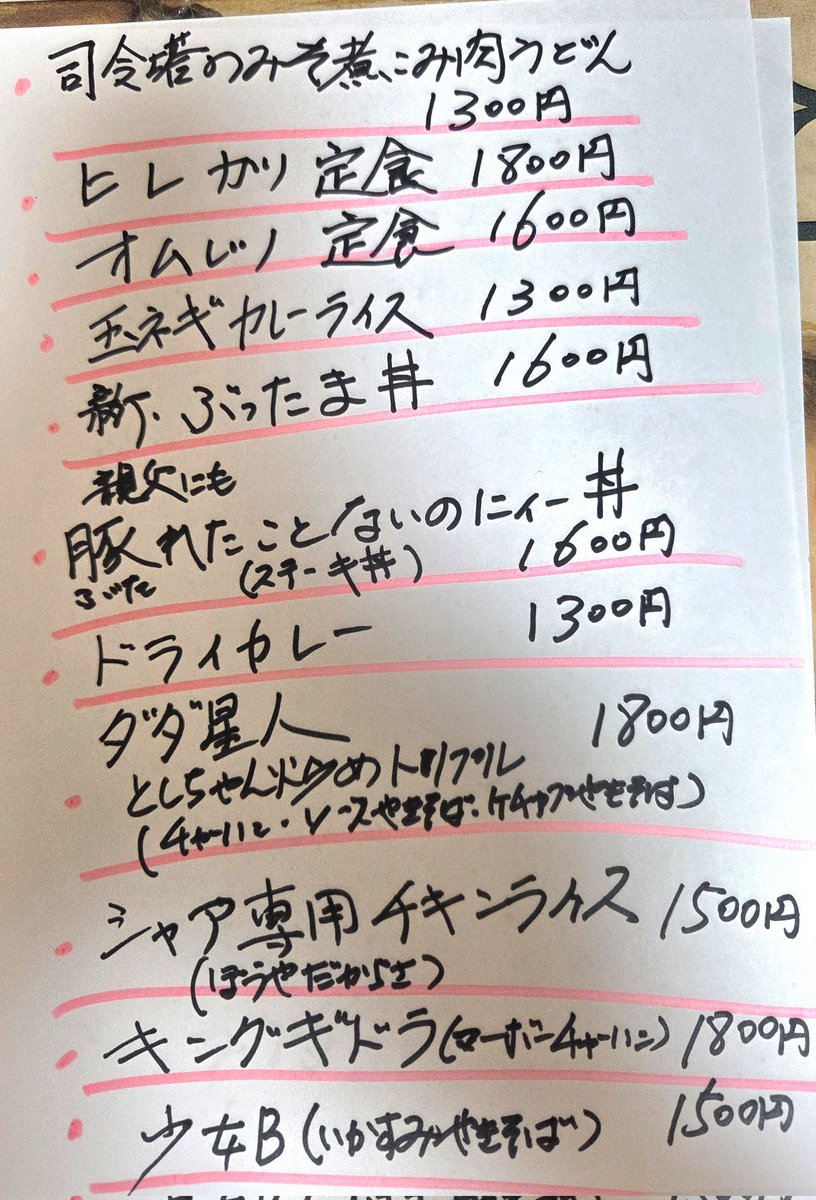 司令塔のみそ煮こみ肉うどん
1300円
ヒレカツ定食 1800円
オムレツ定食 1600円
玉ネギカレーライス 1300円
新・ぶったま丼 1600円
親父にも
豚れたことないのにィー丼
ぶた (ステーキ丼) 1600円
ドライカレー 1300円
ダダ星人 1800円
としちゃん炒めトリプル
(チャーハン・ソースやきそば・ケチャップやきそば)
シャア専用チキンライス 1500円
(ぼうやだからさ)
キングギドラ(ローボーチャーハン) 1800円
少女B(いかすみやきそば) 1500円